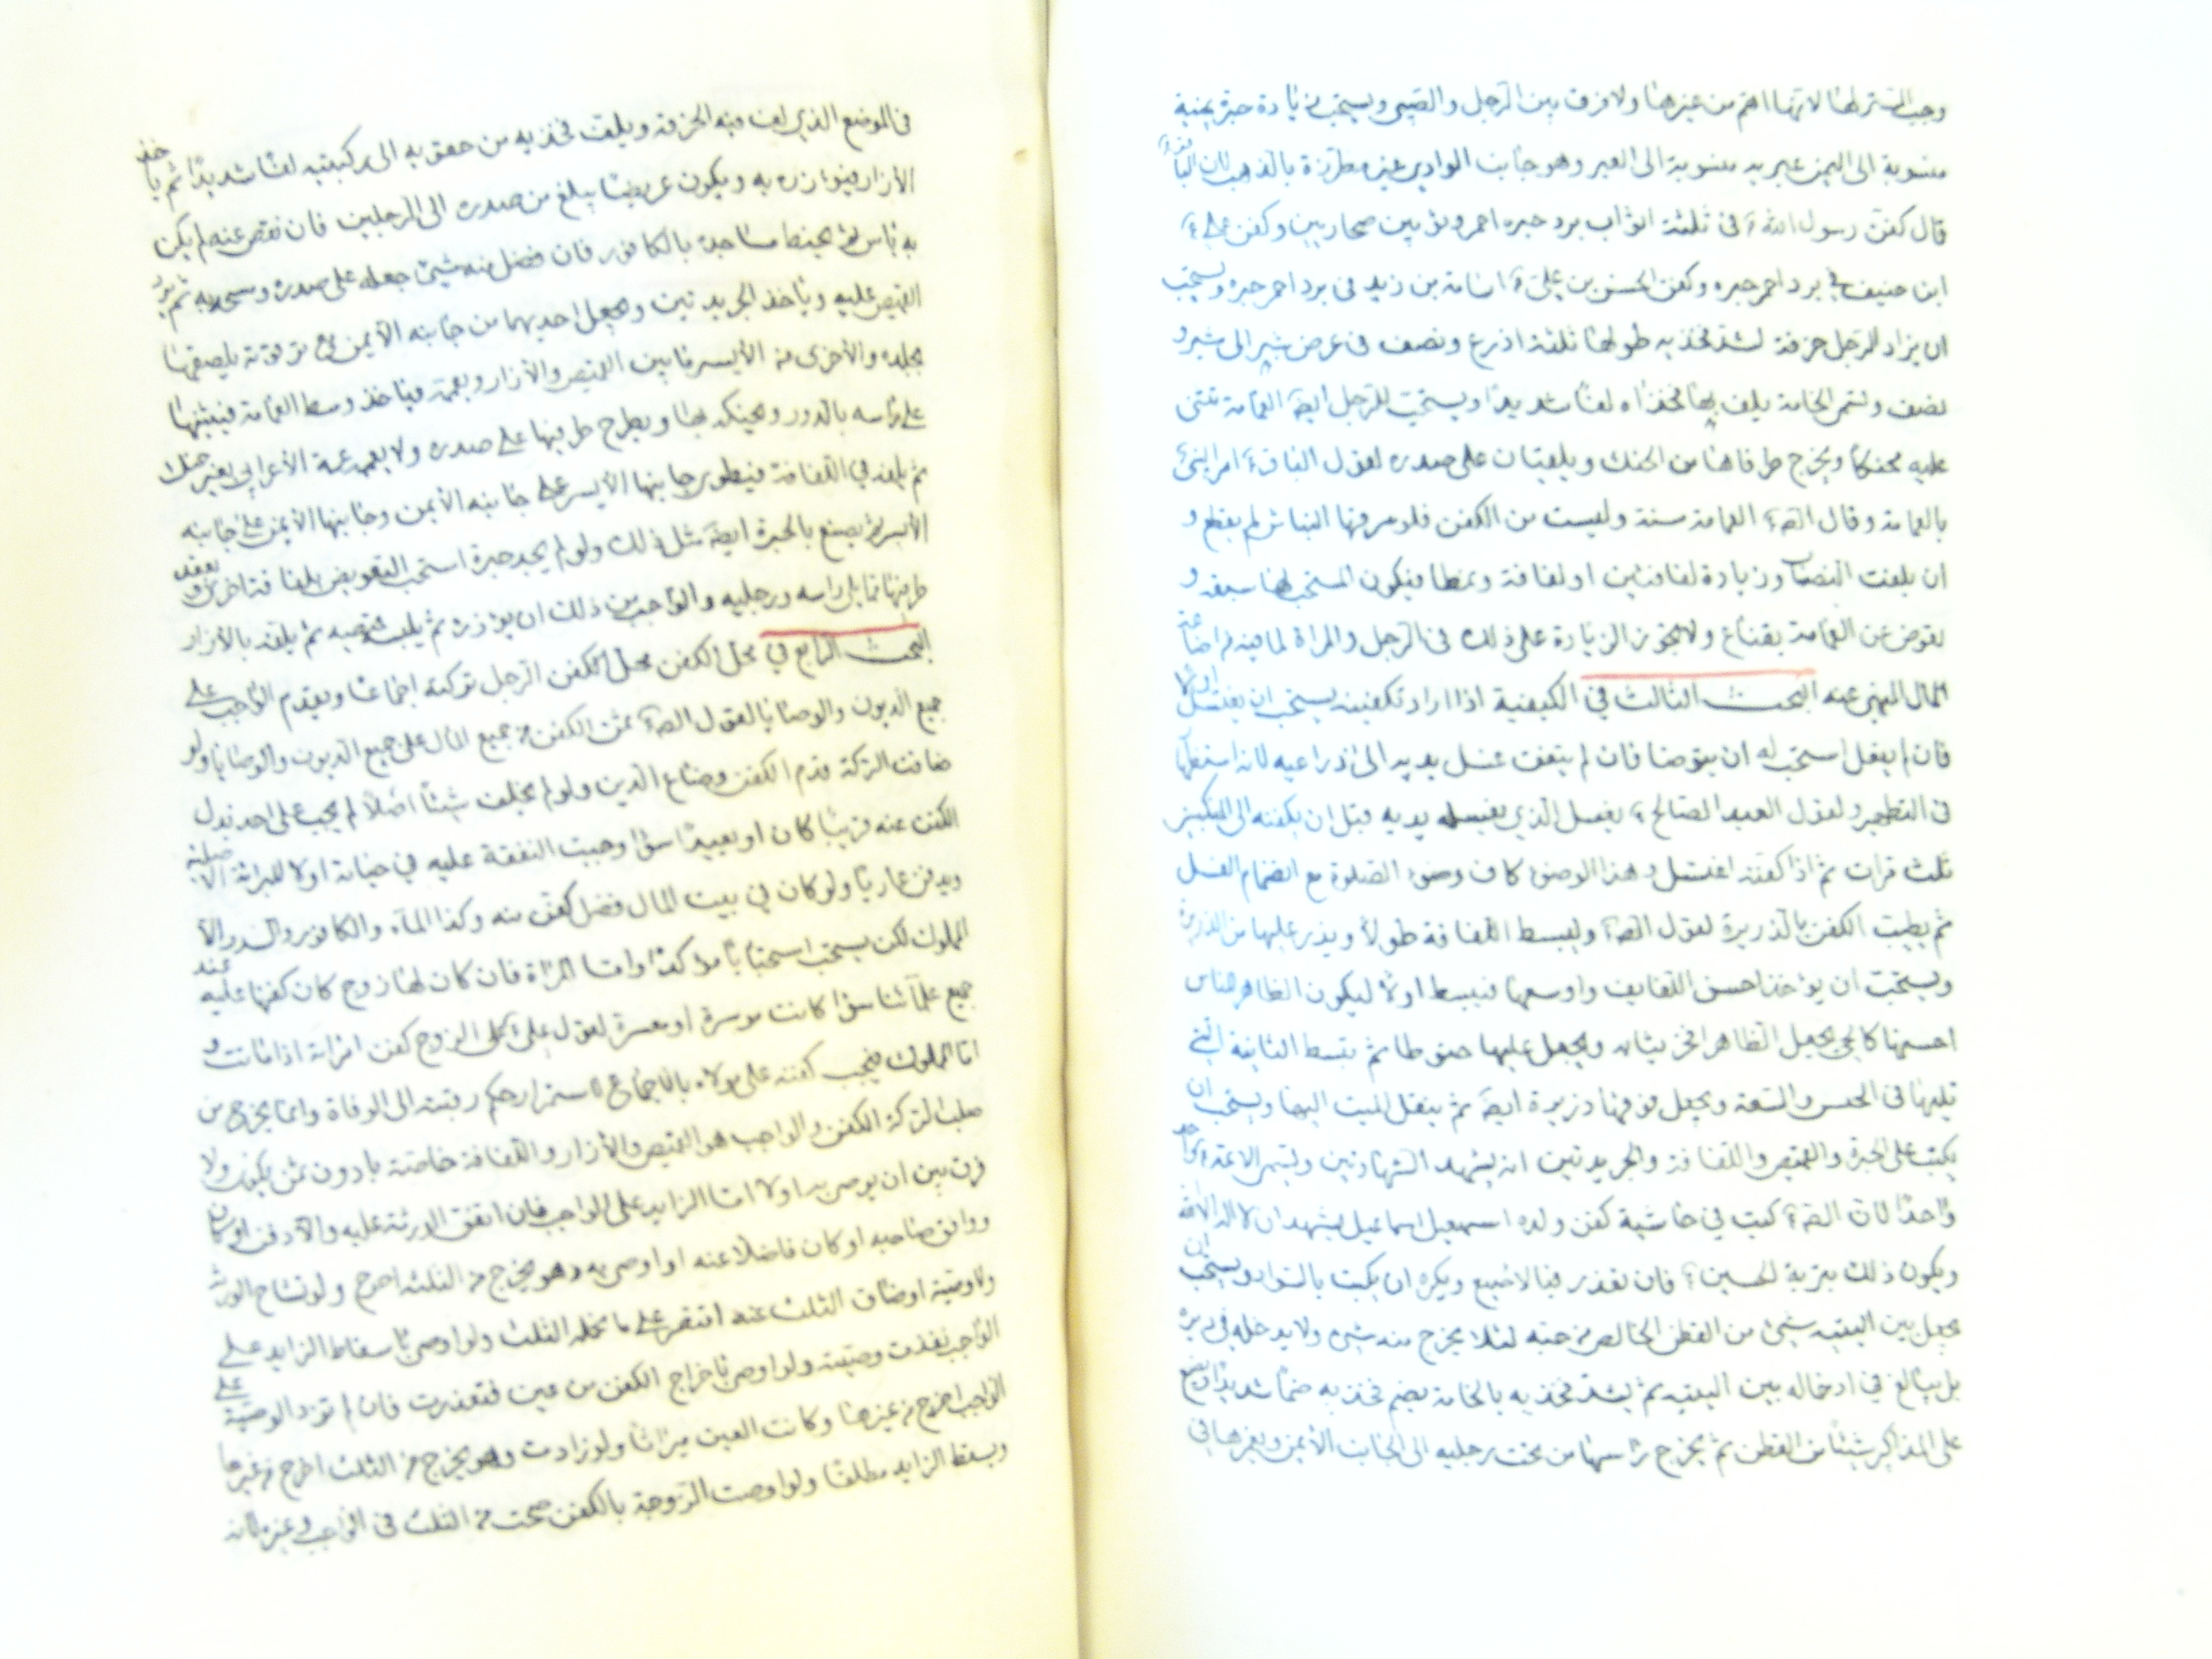 وجب الستر لهنا لانها اهم من غيرها ولا فرق بين الرجل والصبي ويستحب زيادة حبرة يمنية
منسوبة الى اليمن عبريه منسوبة الى العبر وهو جانب الوادي غير مطرزة بالذهب لان الباقر ع
قال كفن رسول الله ص في ثلثة اثواب برد حبره احمر وثوبين صحاريين وكفن علي ع
ابن حنيف في برد احمر حبره وكفن الحسن بن علي ع اسامة بن زيد في برد احمر حبره ويستحب
ان يزاد للرجل خرقة لشد فخذيه طولها ثلثة اذرع ونصف في عرض شبر الى شبر و
نصف وتسمى الخامسة يلف بها فخذاه لفا شديدا ويستحب للرجل ايضا العمامة تثنى
عليه محنكا ويخرج طرفاها من الحنك ويلقيان على صدره لقول الباقر ع امر النبي ص
بالعمامة وقال الص ع العمامة سنة وليست من الكفن فلو سرقها النباش لم يقطع و
ان بلغت النصاب وزيادة لفافتين او لفافة ونمطا فيكون المستحب لها سبعة و
تعوض عن العمامة بقناع ولا يجوز الزيادة على ذلك في الرجل والمراة لما فيه من اضاعة
المال المنهي عنه البحث الثالث في الكيفية اذا اراد تكفينه يستحب ان يغتسل اولا
فان لم يفعل استحب له ان يتوضا فان لم يتفق غسل يديه الى ذراعيه لانه استظهار
في التطهير ولقول العبد الصالح ع يغسل الذي يغسله يديه قبل ان يكفنه الى المنكبين
ثلث مرات ثم اذا كفنه اغتسل وهذا الوضوء كاف وضوء الصلوة مع انضمام الغسل
ثم يطيب الكفن بالذريرة لقول الص ع وليبسط اللفافة طولا ويذر عليها من الذريرة
ويستحب ان يؤخذ احسن اللفايف واوسعها فيبسط اولا ليكون الظاهر للناس
احسنها كالحي يجعل الظاهر افخر ثيابه ويجعل عليها حنوطا ثم تبسط الثانية التي
تليها في الحسن والسعة ويجعل فوقها ذريرة ايضا ثم ينقل الميت اليها ويستحب ان
يكتب على الحبرة والقميص واللفافة والجريدتين انه يشهد الشهادتين وليسم الائمة ع واحدا
واحدا لان الص ع كتب في حاشية كفن ولده اسمعيل اسماعيل يشهد ان لا اله الا الله
ويكون ذلك بتربة الحسين ع فان تعذر فبالاصبع ويكره ان يكتب بالسواد ويستحب ان
يجعل بين اليتيه شيئ من القطن الخالص من حبه لئلا يخرج منه شيء ولا يدخله في دبره
بل يبالغ في ادخاله بين اليتيه ثم يشد فخذيه بالخامسة يضم فخذيه ضما شديدا ويضع
على المذاكير شيئا من القطن ثم يخرج راسها من تحت رجليه الى الجانب الأيمن ويغرزها في
في الموضع الذي لف فيه الخرقة ويلف فخذيه من حقويه الى ركبتيه لفا شديدا ثم ياخذ
الأزار فيوازره به ويكون عريضا يبلغ من صدره الى الرجلين فان نقص عنه لم يكن
به باس ثم يحنط مساجده بالكافور فان فضل منه شيئ جعله على صدره ومسحه به ثم يرد
القميص عليه وياخذ الجريدتين ويجعل احديهما من جانبه الأيمن مع ترقوته يلصقها
بجلده والأخرى من الأيسر ما بين القميص والأزار ويعممه فياخذ وسط العمامة فيثنيها
على راسه بالدور ويحنكه بها ويطرح طرفيها على صدره ولا يعممه عمة الأعرابي بغير حنك
ثم يلفه في اللفافة فيطوي جانبها الأيسر على جانبه الأيمن وجانبها الأيمن على جانبه
الأيسر ثم يصنع بالحبرة ايضا مثل ذلك ولو لم يجد حبرة استحب التعويض بلفافة اخرى ويعقد
طرفيها مما يلي راسه ورجليه والواجب من ذلك ان يؤزره ثم يلبسه قميصه ثم يلفه بالأزار
البحث الرابع في محل الكفن محل الكفن الرجل تركته اجماعا ويقدم الواجب على
جميع الديون والوصايا لقول الص ع ثمن الكفن من جميع المال على جميع الديون والوصايا ولو
ضاقت التركة قدم الكفن وضاع الدين ولو لم يخلف شيئا اصلا لم يجب على احد بذل
الكفن عنه قريبا كان او بعيدا سواء وجبت النفقة عليه في حياته اولا للبرائة الاصلية
ويدفن عاريا ولو كان في بيت المال فضل كفن منه وكذا الماء والكافور والسدر الا
المملوك لكن يستحب استحبابا مؤكدا واما المراة فان كان لها زوج كان كفنها عليه عند
جميع علمائنا سواء كانت موسرة او معسرة لقول علي ع على الزوج كفن امراته اذا ماتت و
اما المملوك فيجب كفنه على مولاه بالاجماع لاستمرار حكم رقيته الى الوفاة وانما يخرج من
صلب التركة الكفن الواجب هو القميص والأزار واللفافة خاصة بادون ثمن يكون ولا
فرق بين ان يوصى به اولا اما الزايد على الواجب فان اتفق الورثة عليه والا دفن
ووافق صاحبه او كان فاضلا عنه او اوصى به وهو يخرج من الثلث اخرج ولو تشاح الورثة
ولا وصية او ضاق الثلث عنه اقتصر على ما يحمله الثلث ولو اوصى باسقاط الزايد على
الواجب نفذت وصيته ولو اوصى باخراج الكفن من عين فتعذرت فان لم تزد الوصية على
الواجب اخرج من غيرها وكانت العين ميراثا ولو زادت وهو يخرج من الثلث اخرج من غيرها
ويسقط الزايد مطلقا ولو اوصت الزوجة بالكفن صحت من الثلث في الواجب وغيره لانه